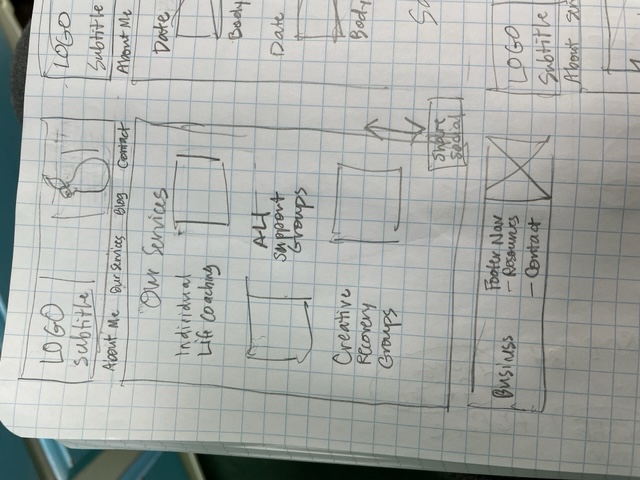 LOGO
Subtitle
About Me Our Services Blog Contact
Our Services
Individual
Life Coaching
ALT
Support
Groups
Creative
Recovery
Groups
Share
Social
Business
Footer Nav
- Resources
- Contact
LOGO
Subtitle
About Me
Date
Body
Date
Body
LOGO
Subtitle
About Ser